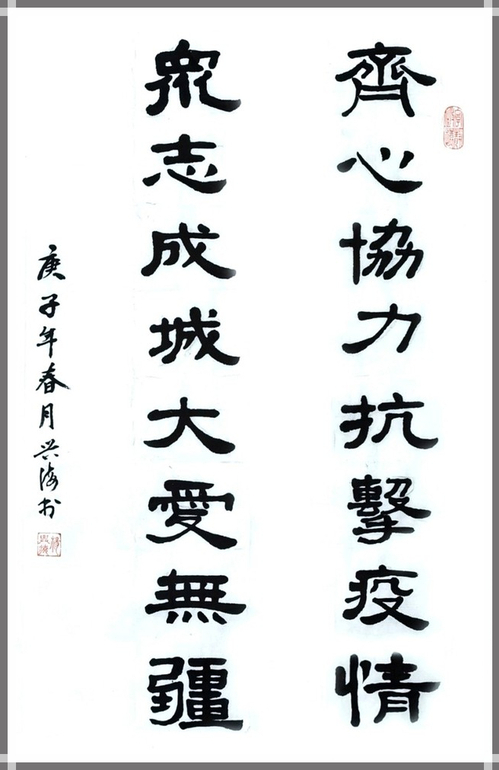 齊心協力抗擊疫情
眾志成城大愛無疆
庚子年春月兴海书